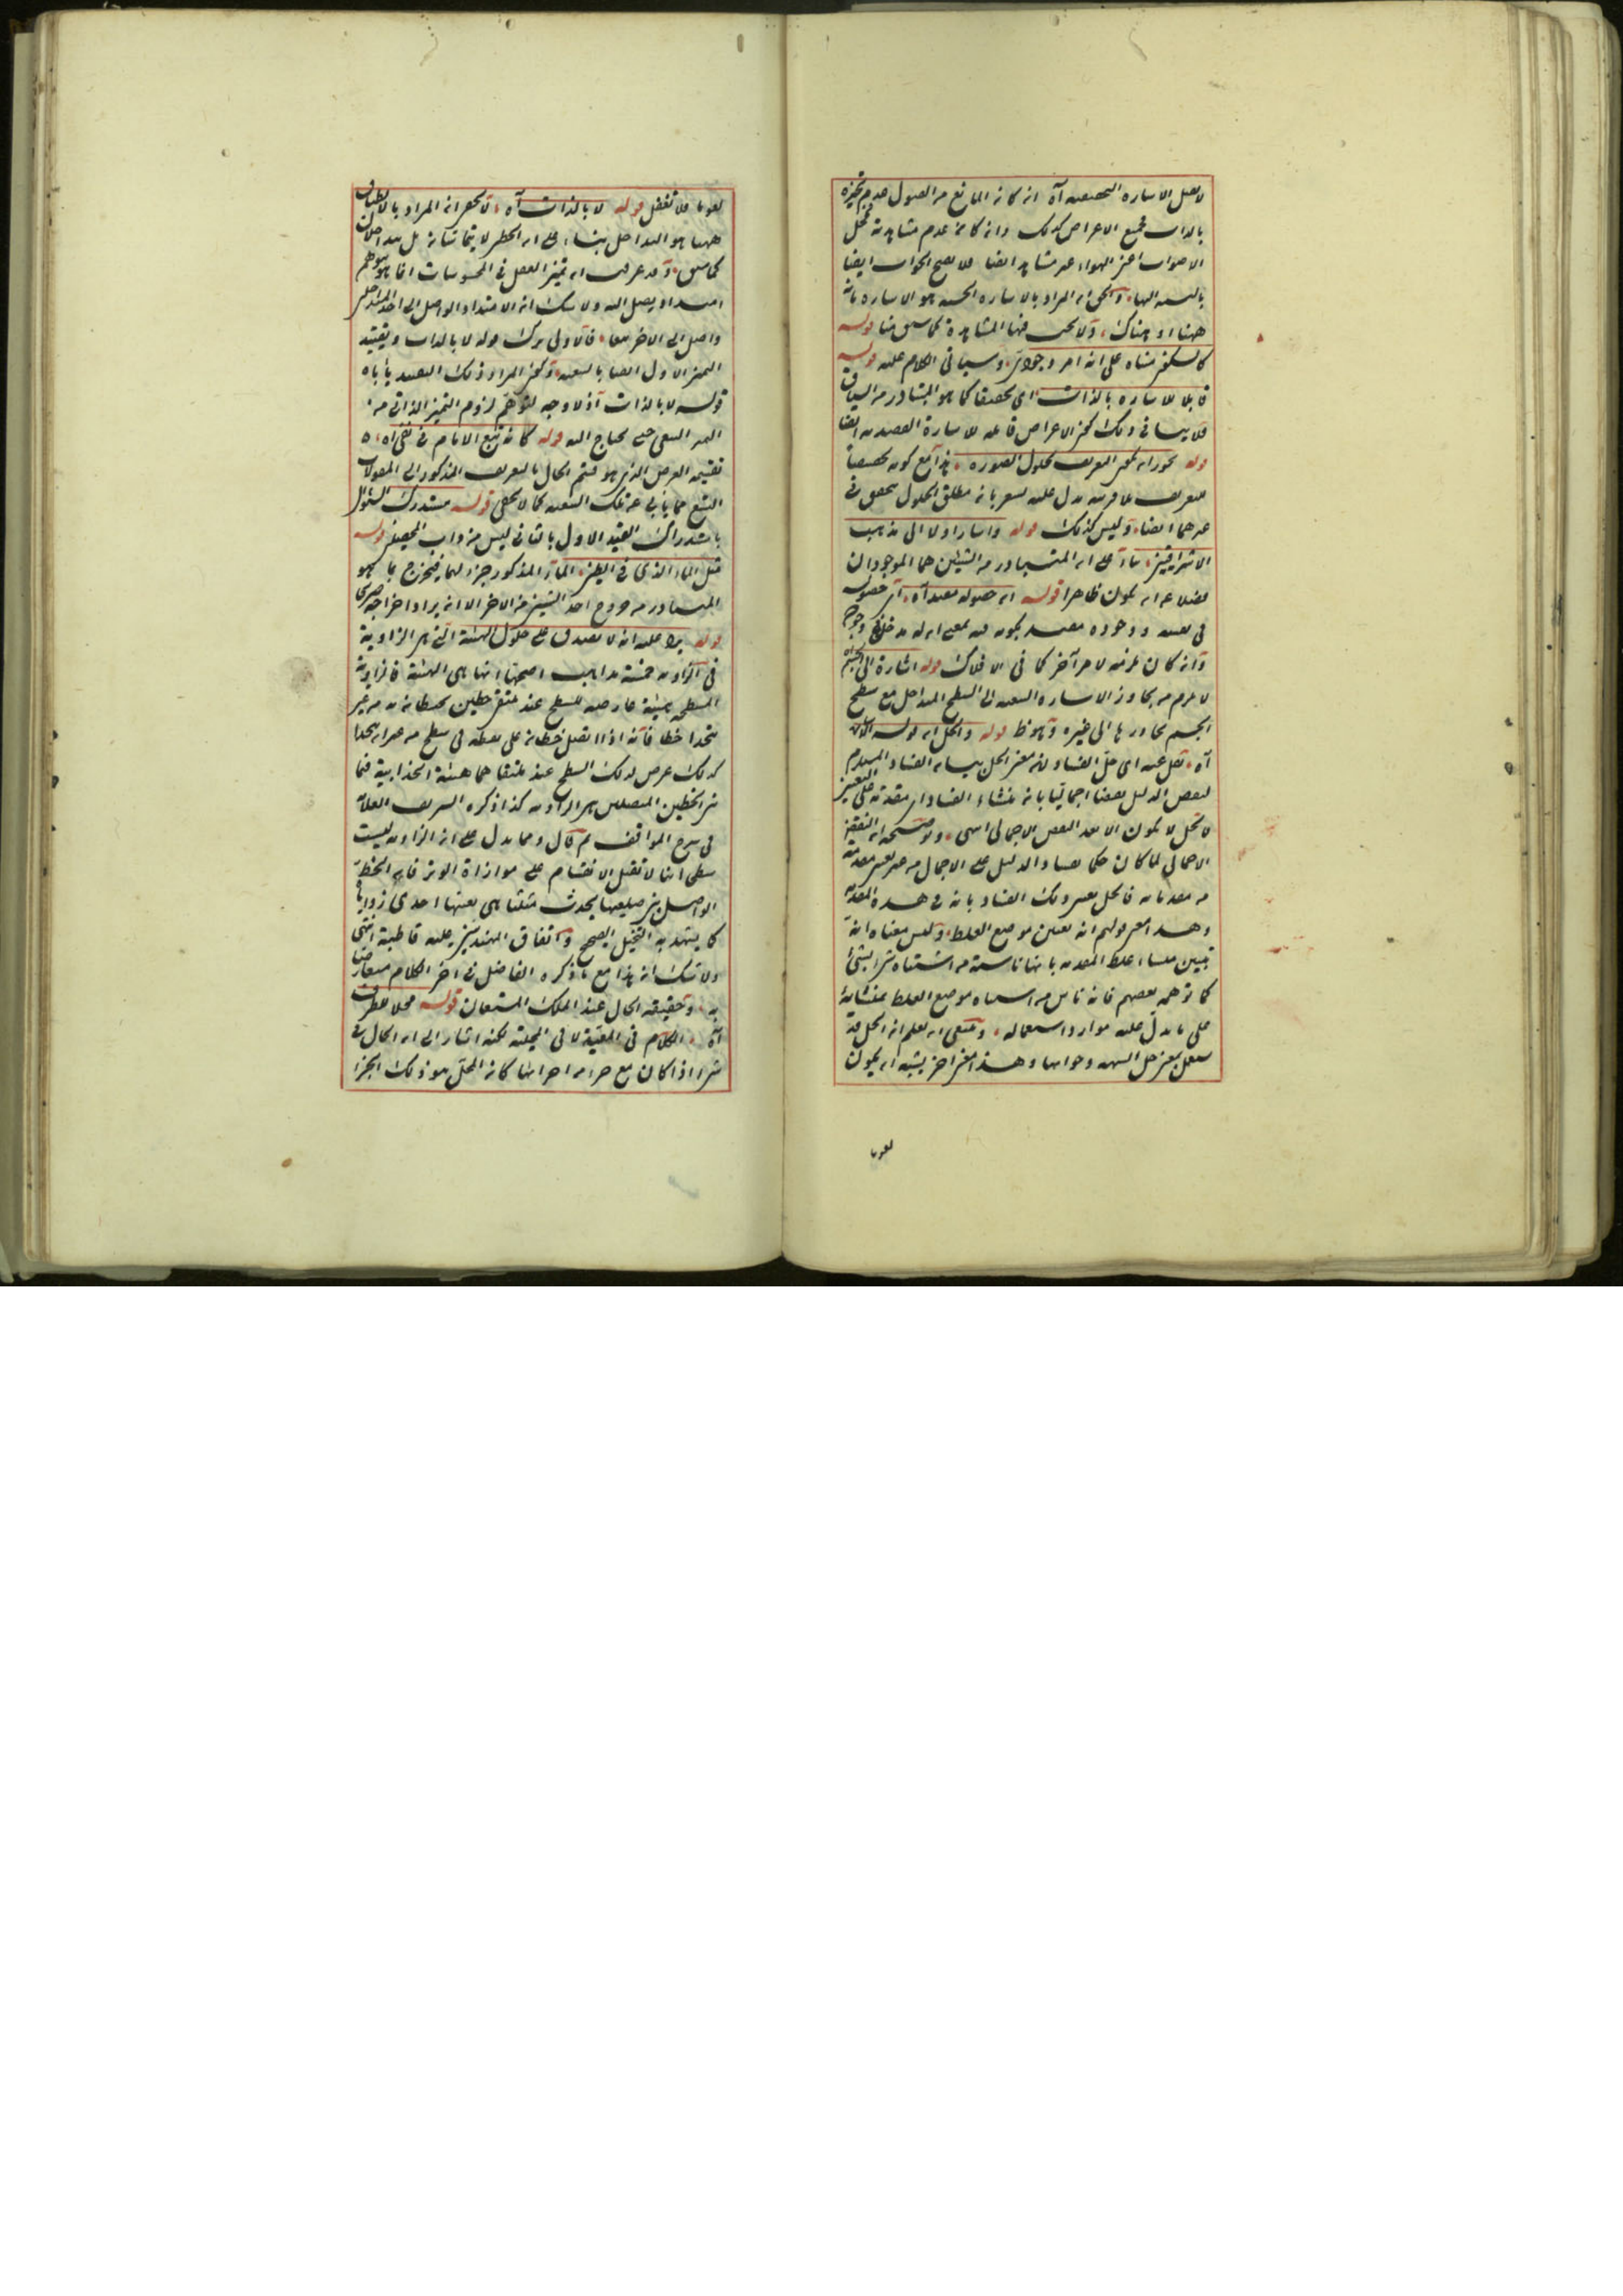 لا يقبل الاشارة التحقيقية آه ان كان المانع من القبول عدم تحيزه
بالذات فجميع الاعراض كذلك وان كان عدم مشاهدته فمحل
الاصوات اعنى الهواء غير مشاهد ايضا فلا يصح الجواب ايضا
بالنسبة اليها والحق ان المراد بالاشارة الحسية هو الاشارة بانه
ههنا او هناك ولا يجب فيها المشاهدة كما سبق منا قوله
كالسكون بناء على انه امر وجودى وسيأتى الكلام عليه قوله
قابلا للاشارة بالذات اى تحقيقا كما هو المتبادر من السياق
فلا ينافى ذلك كون الاعراض قابلة للاشارة القصدية ايضا
قوله يجوز ان يكون التعريف لحلول الصورة هذا مع كونه تخصيصا
للتعريف بلا قرينة تدل عليه يشعر بان مطلق الحلول يتحقق فى
غيرهما ايضا وليس كذلك قوله واشار اولا الى مذهب
الاشراقيين بناء على ان المتبادر من الشيئين هما الموجودان
فضلا عن ان يكون ظاهرا قوله ان حصوله مقيد آه اى حصوله
فى نفسه ووجوده مقيد بكونه فيه بمعنى ان له مدخلا فى وجوده
وان كان لازمه لامر آخر كما فى الافلاك قوله اشارة الى الجسم
لا يلزم من تجاوز الاشارة التبعية الى السطح المتداخل مع سطح
الجسم تجاوزها الى غيره وهو ظ قوله والحل ان قوله
آه نقل عنه اى حل الفساد لان معنى الحل بيان الفساد المستلزم
لنقض الدليل نقضا اجماليا بان منشاء الفساد اى مقدمة على التعيين
لا الحل لا يكون الا بعد النقض الاجمالى انتهى وتوضيحه ان النقض
الاجمالى لما كان حكما بفساد الدليل على الاجمال من غير تعيين مقدمة
من مقدماته فالحل تعيين ذلك الفساد بانه فى هذه المقدمة
وهذا معنى قولهم انه تعيين موضع الغلط وليس معناه انه
تبيين منشاء غلط المقدمة بانها ناشئة من اشتباه شئ بشئ
كما توهمه بعضهم فانه ناش من اشتباه موضع الغلط بمنشائه
على ما يدل عليه موارد استعماله وينبغى ان يعلم ان الحل قد
يستعمل بمعنى حل الشبهة وجوابها وهذا معنى آخر يشبه ان يكون
لغويا
لغويا فلا تغفل قوله لا بالذات آه لا يخفى ان المراد بالانطباق
ههنا هو التداخل بناء على ان الخطين لا يتماسان بل يتداخلان
كما سبق وقد عرفت ان تميز العقل فى المحسوسات انما هو بتوهم
امتداد يصل اليه ولا شك ان الامتداد الواصل الى احد المتداخلين
واصل الى الاخر معا فالاولى ترك قوله لا بالذات وتقييد
التميز الاول ايضا بالتبعية وكون المراد ذلك التقييد يأباه
قوله لا بالذات اذ لا وجه لتوهم لزوم التميز الذاتى من
التميز التبعى حتى يحتاج اليه قوله كانه تبع الامام فى نفى آه
تقسيمه العرض الذى هو قسم الحال بالتعريف المذكور الى المقولات
التسع مما يأبى عن تلك التبعية كما لا يخفى قوله مستدرك
باستدراك القيد الاول بالثانى ليس من داب المحصلين قوله
مثل الماء الذى فى الطين الماء المذكور جزء لهما فيخرج بما هو
المتبادر من خروج احد الشيئين من الاخر الا ان يراد اخراجه صريحا
قوله يرد عليه انه لا يصدق على حلول الهيئة التى هى الزاوية
فى الزاوية خمسة مذاهب اصحها انها هى الهيئة فالزاوية
المسطحة هيئة عارضة للسطح عند ملتقى خطين يحيطان به من غير ان
يتحدا خطا فانه اذا اتصل خطان على نقطة فى سطح من غير ان يتحدا
كذلك عرض لذلك السطح عند ملتقاهما هيئة انحدابية فيما
بين الخطين المتصلين هى الزاوية كذا ذكره الشريف العلامة
فى شرح المواقف ثم قال ومما يدل على ان الزاوية ليست
سطحا انها لا تقبل الانقسام على موازاة الوتر فان الخط
الواصل بين ضلعيها يحدث مثلثا هى بعينها احدى زواياه
كما يشهد به التخيل الصحيح واتفاق المهندسين عليه قاطبة انتهى
ولا شك ان هذا مع ما ذكره الفاضل فى آخر الكلام
به وحقيقة الحال عند الملك المستعان قوله محلا للطرف
آه الكلام فى المعية لا فى المحلية لكنه اشار الى ان الحال فى
شئ اذا كان مع جزء من اجزائها كان المحل هو ذلك الجزء